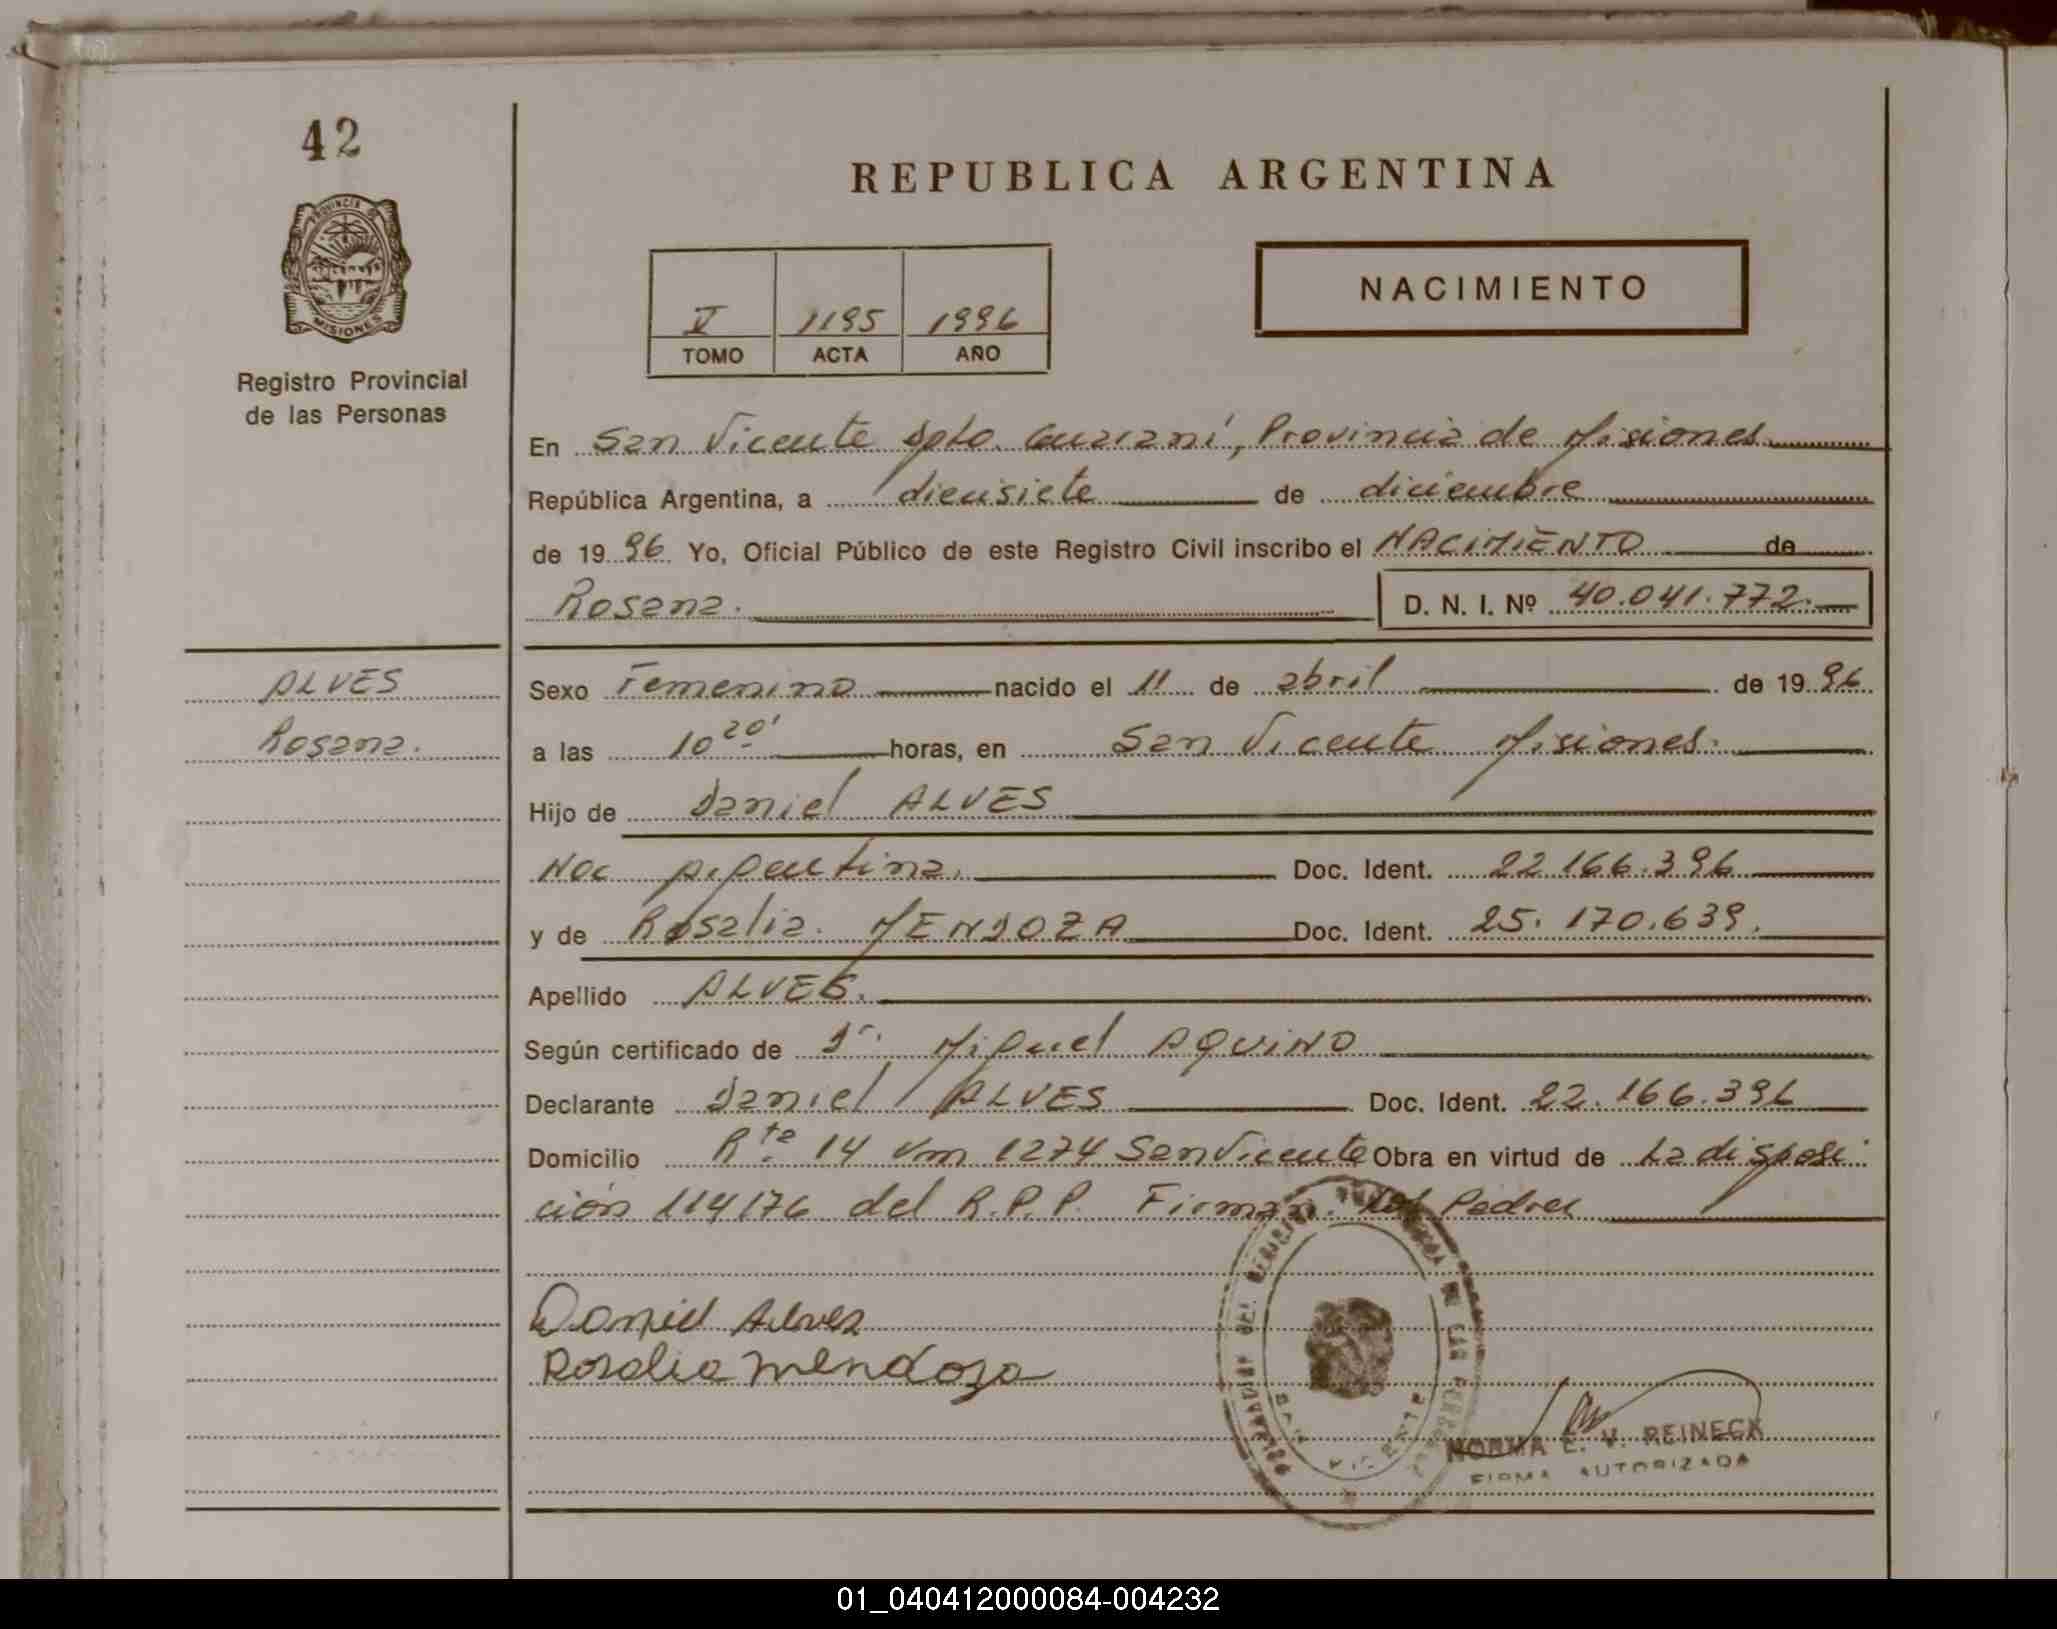 42
REPUBLICA ARGENTINA
PROVINCIA DE
MISIONES
Registro Provincial
de las Personas
V 1195 1996
TOMO ACTA AÑO
NACIMIENTO
En San Vicente Dpto. Guaraní, Provincia de Misiones
República Argentina, a diecisiete de diciembre
de 19 96 Yo, Oficial Público de este Registro Civil inscribo el NACIMIENTO de
Rosana. D. N. I. Nº 40.041.772.
ALVES
Rosana.
Sexo Femenino nacido el 11 de abril de 19 96
a las 10 20' horas, en San Vicente Misiones.
Hijo de Daniel ALVES
Nac Argentina. Doc. Ident. 22.166.396
y de Rosalia. MENDOZA Doc. Ident. 25.170.639.
Apellido ALVES.
Según certificado de Dr. Miguel AQUINO
Declarante Daniel ALVES Doc. Ident. 22.166.396
Domicilio Rta. 14 Km 1274 San Vicente Obra en virtud de La disposi
ción 114/76 del R.P.P. Firman. Los Padres
Daniel Alves
Rosalia Mendoza
SAN VICENTE
NORMA E. V. REINECK
FIRMA AUTORIZADA
01_040412000084-004232